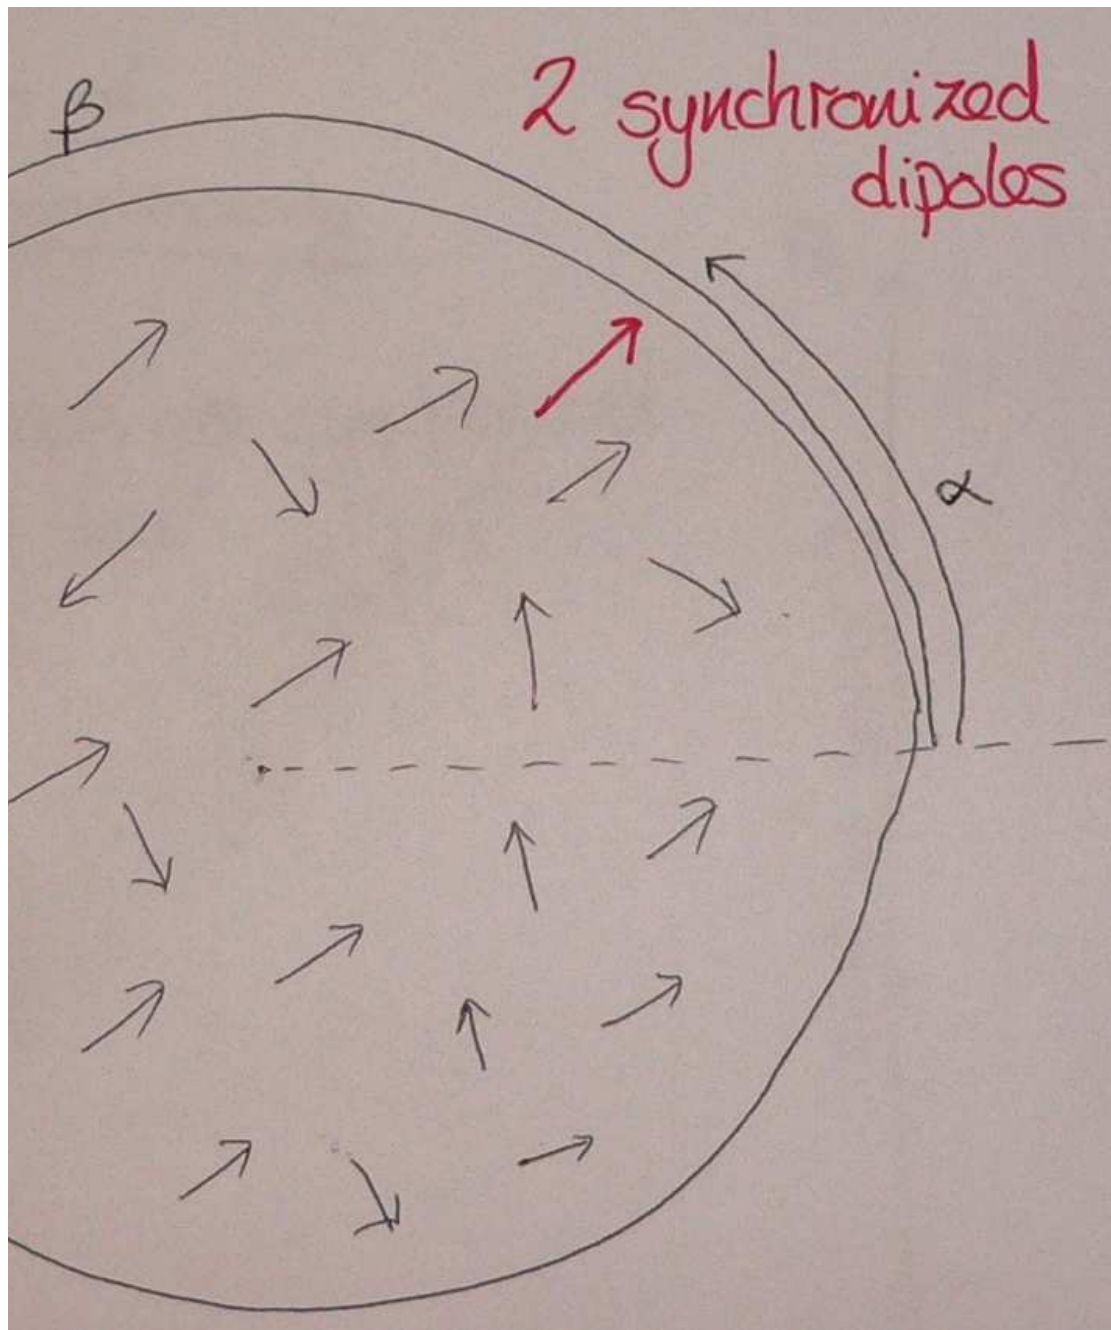 β
2 synchronized
dipoles
α